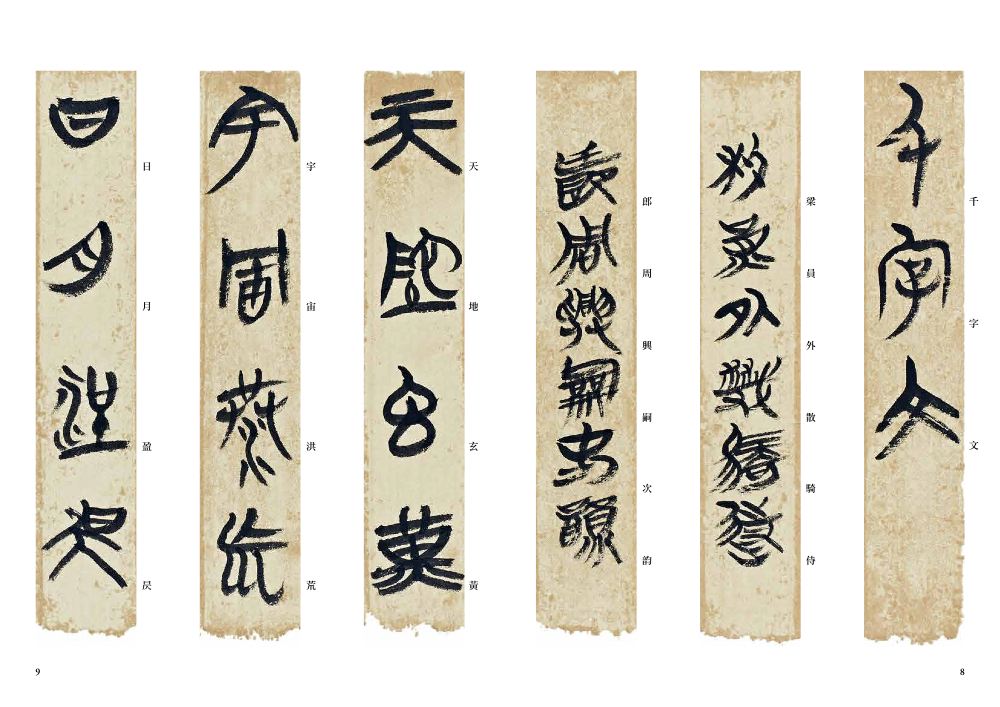 千字文
梁員外散騎侍
郎周興嗣次韵
天地玄黃
宇宙洪荒
日月盈昃
8
9